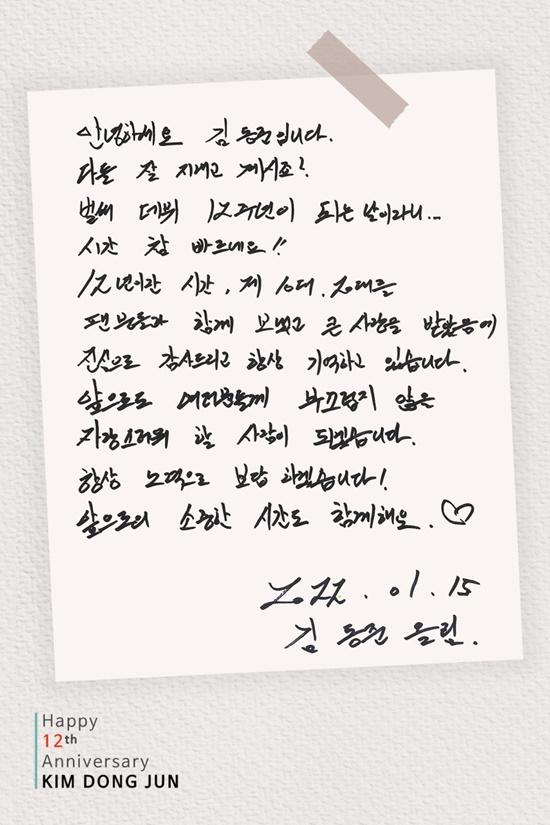 안녕하세요 김동준입니다.
다들 잘 지내고 계시죠?
벌써 데뷔 12주년이 되는 날이라니...
시간 참 빠르네요!!
12년이란 시간, 제 10대, 20대를
팬분들과 함께 보냈고 큰 사랑을 받았음에
진심으로 감사드리고 항상 기억하고 있습니다.
앞으로도 여러분들께 부끄럽지 않은
자랑스러워 할 사람이 되겠습니다.
항상 노력으로 보답 하겠습니다!
앞으로의 소중한 시간도 함께해요. ♡
2022. 01. 15
김동준 올림.
Happy
12th
Anniversary
KIM DONG JUN